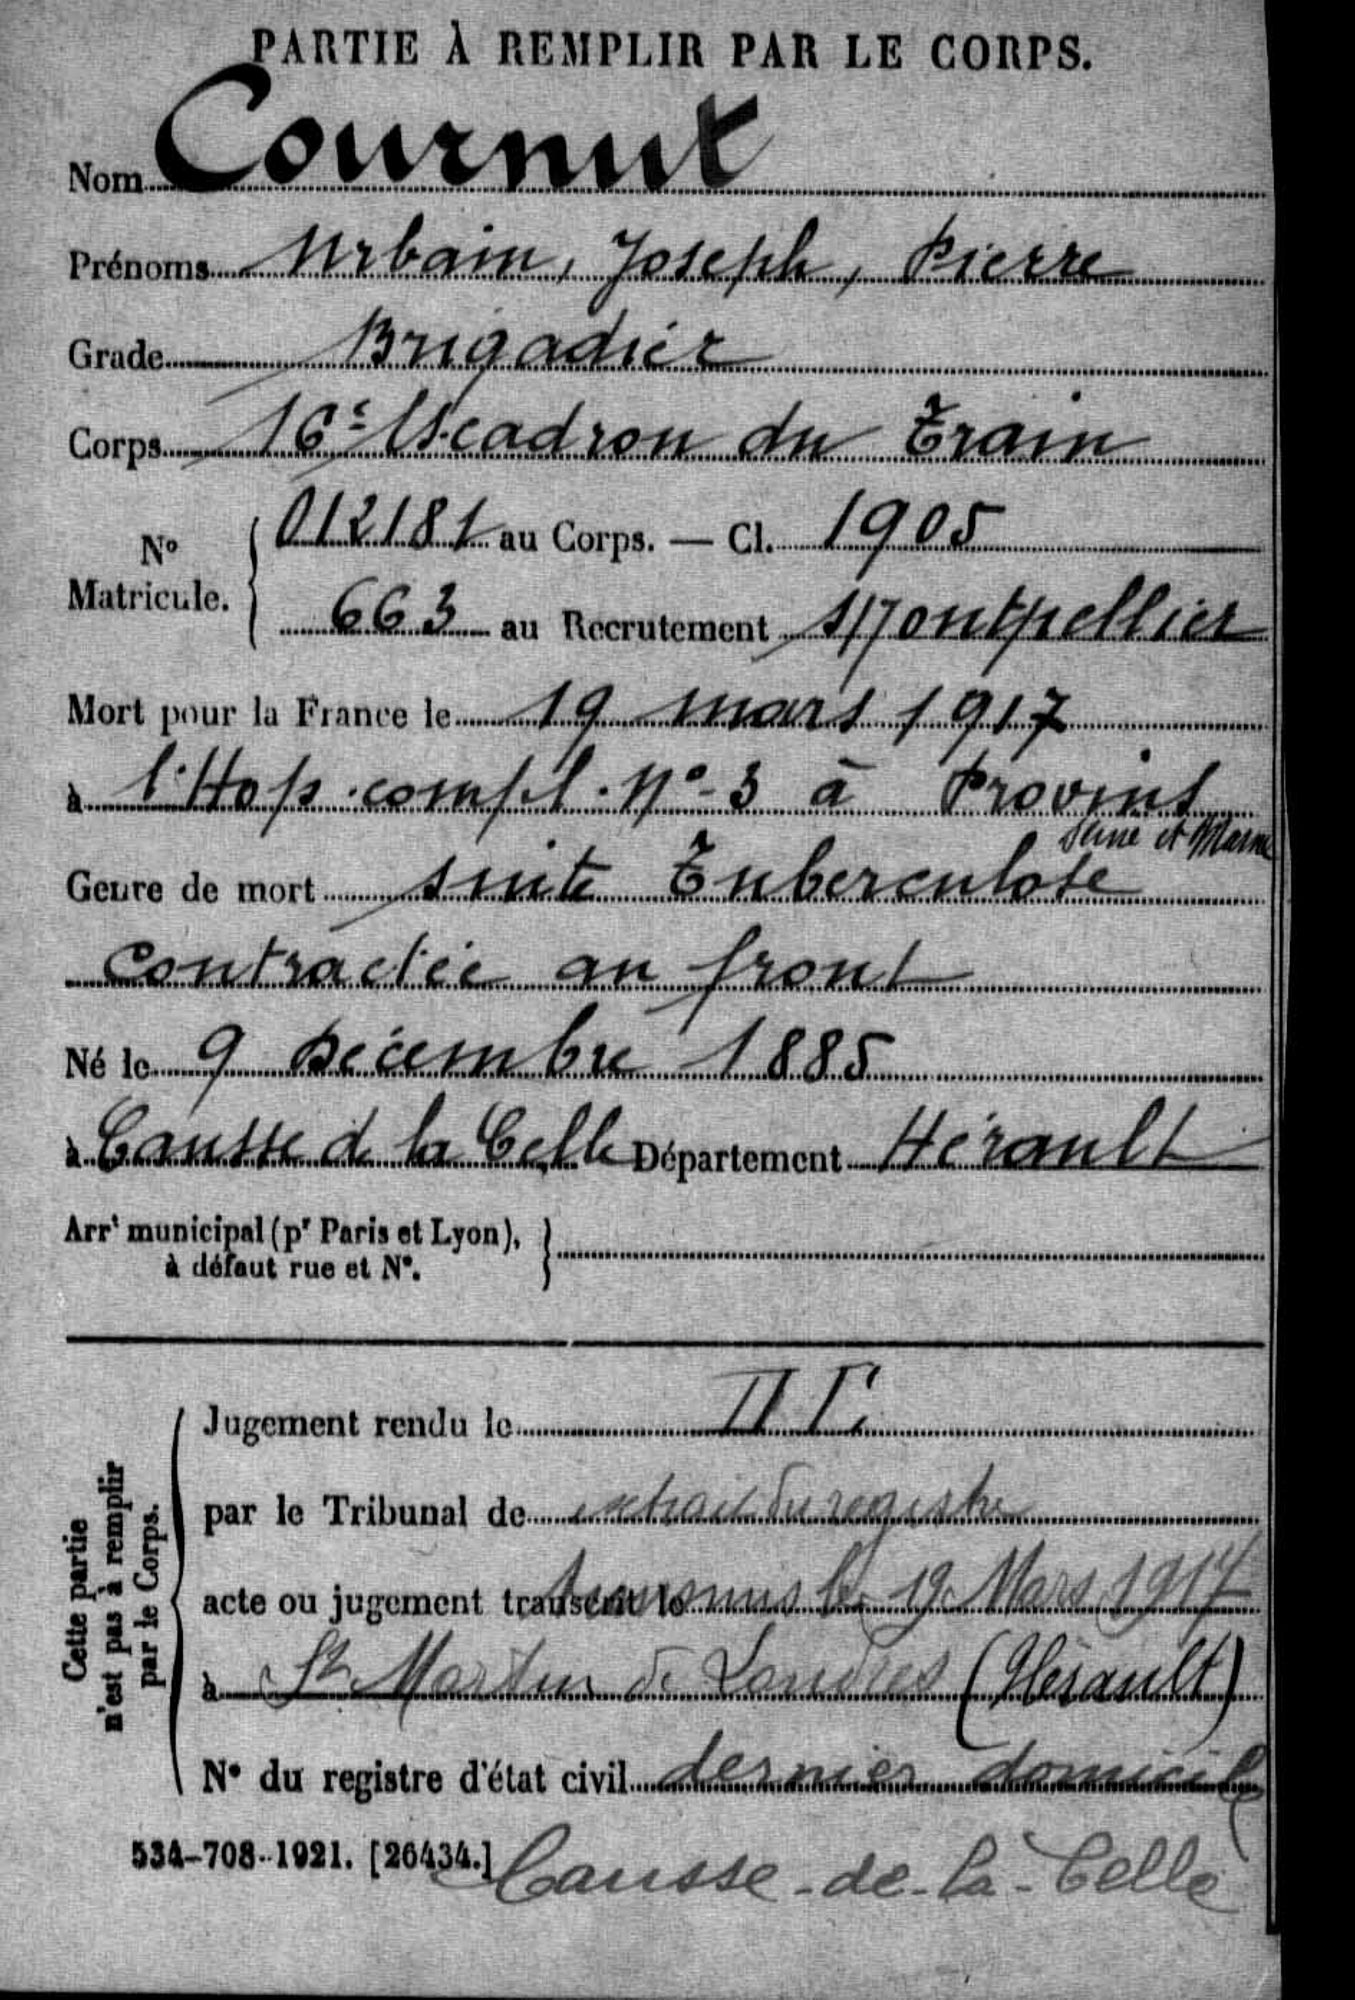 PARTIE À REMPLIR PAR LE CORPS.
Nom Cournut
Prénoms Urbain, Joseph, Pierre
Grade Brigadier
Corps 16e Escadron du Train
No Matricule. { 012181 au Corps. — Cl. 1905
663 au Recrutement Montpellier
Mort pour la France le 19 mars 1917
à l'Hop. compl. No 3 à Provins
Seine et Marne
Genre de mort suite Tuberculose
contractée au front
Né le 9 Décembre 1885
à Causse de la Celle Département Hérault
Arrt municipal (pr Paris et Lyon), à défaut rue et No. }
Cette partie n'est pas à remplir par le Corps.
Jugement rendu le
par le Tribunal de extrait du registre
acte ou jugement transcrit le transmis le 19 Mars 1917
à St Martin de Londres (Hérault)
No du registre d'état civil dernier domicile
534-708-1921. [26434.] Causse-de-la-Celle